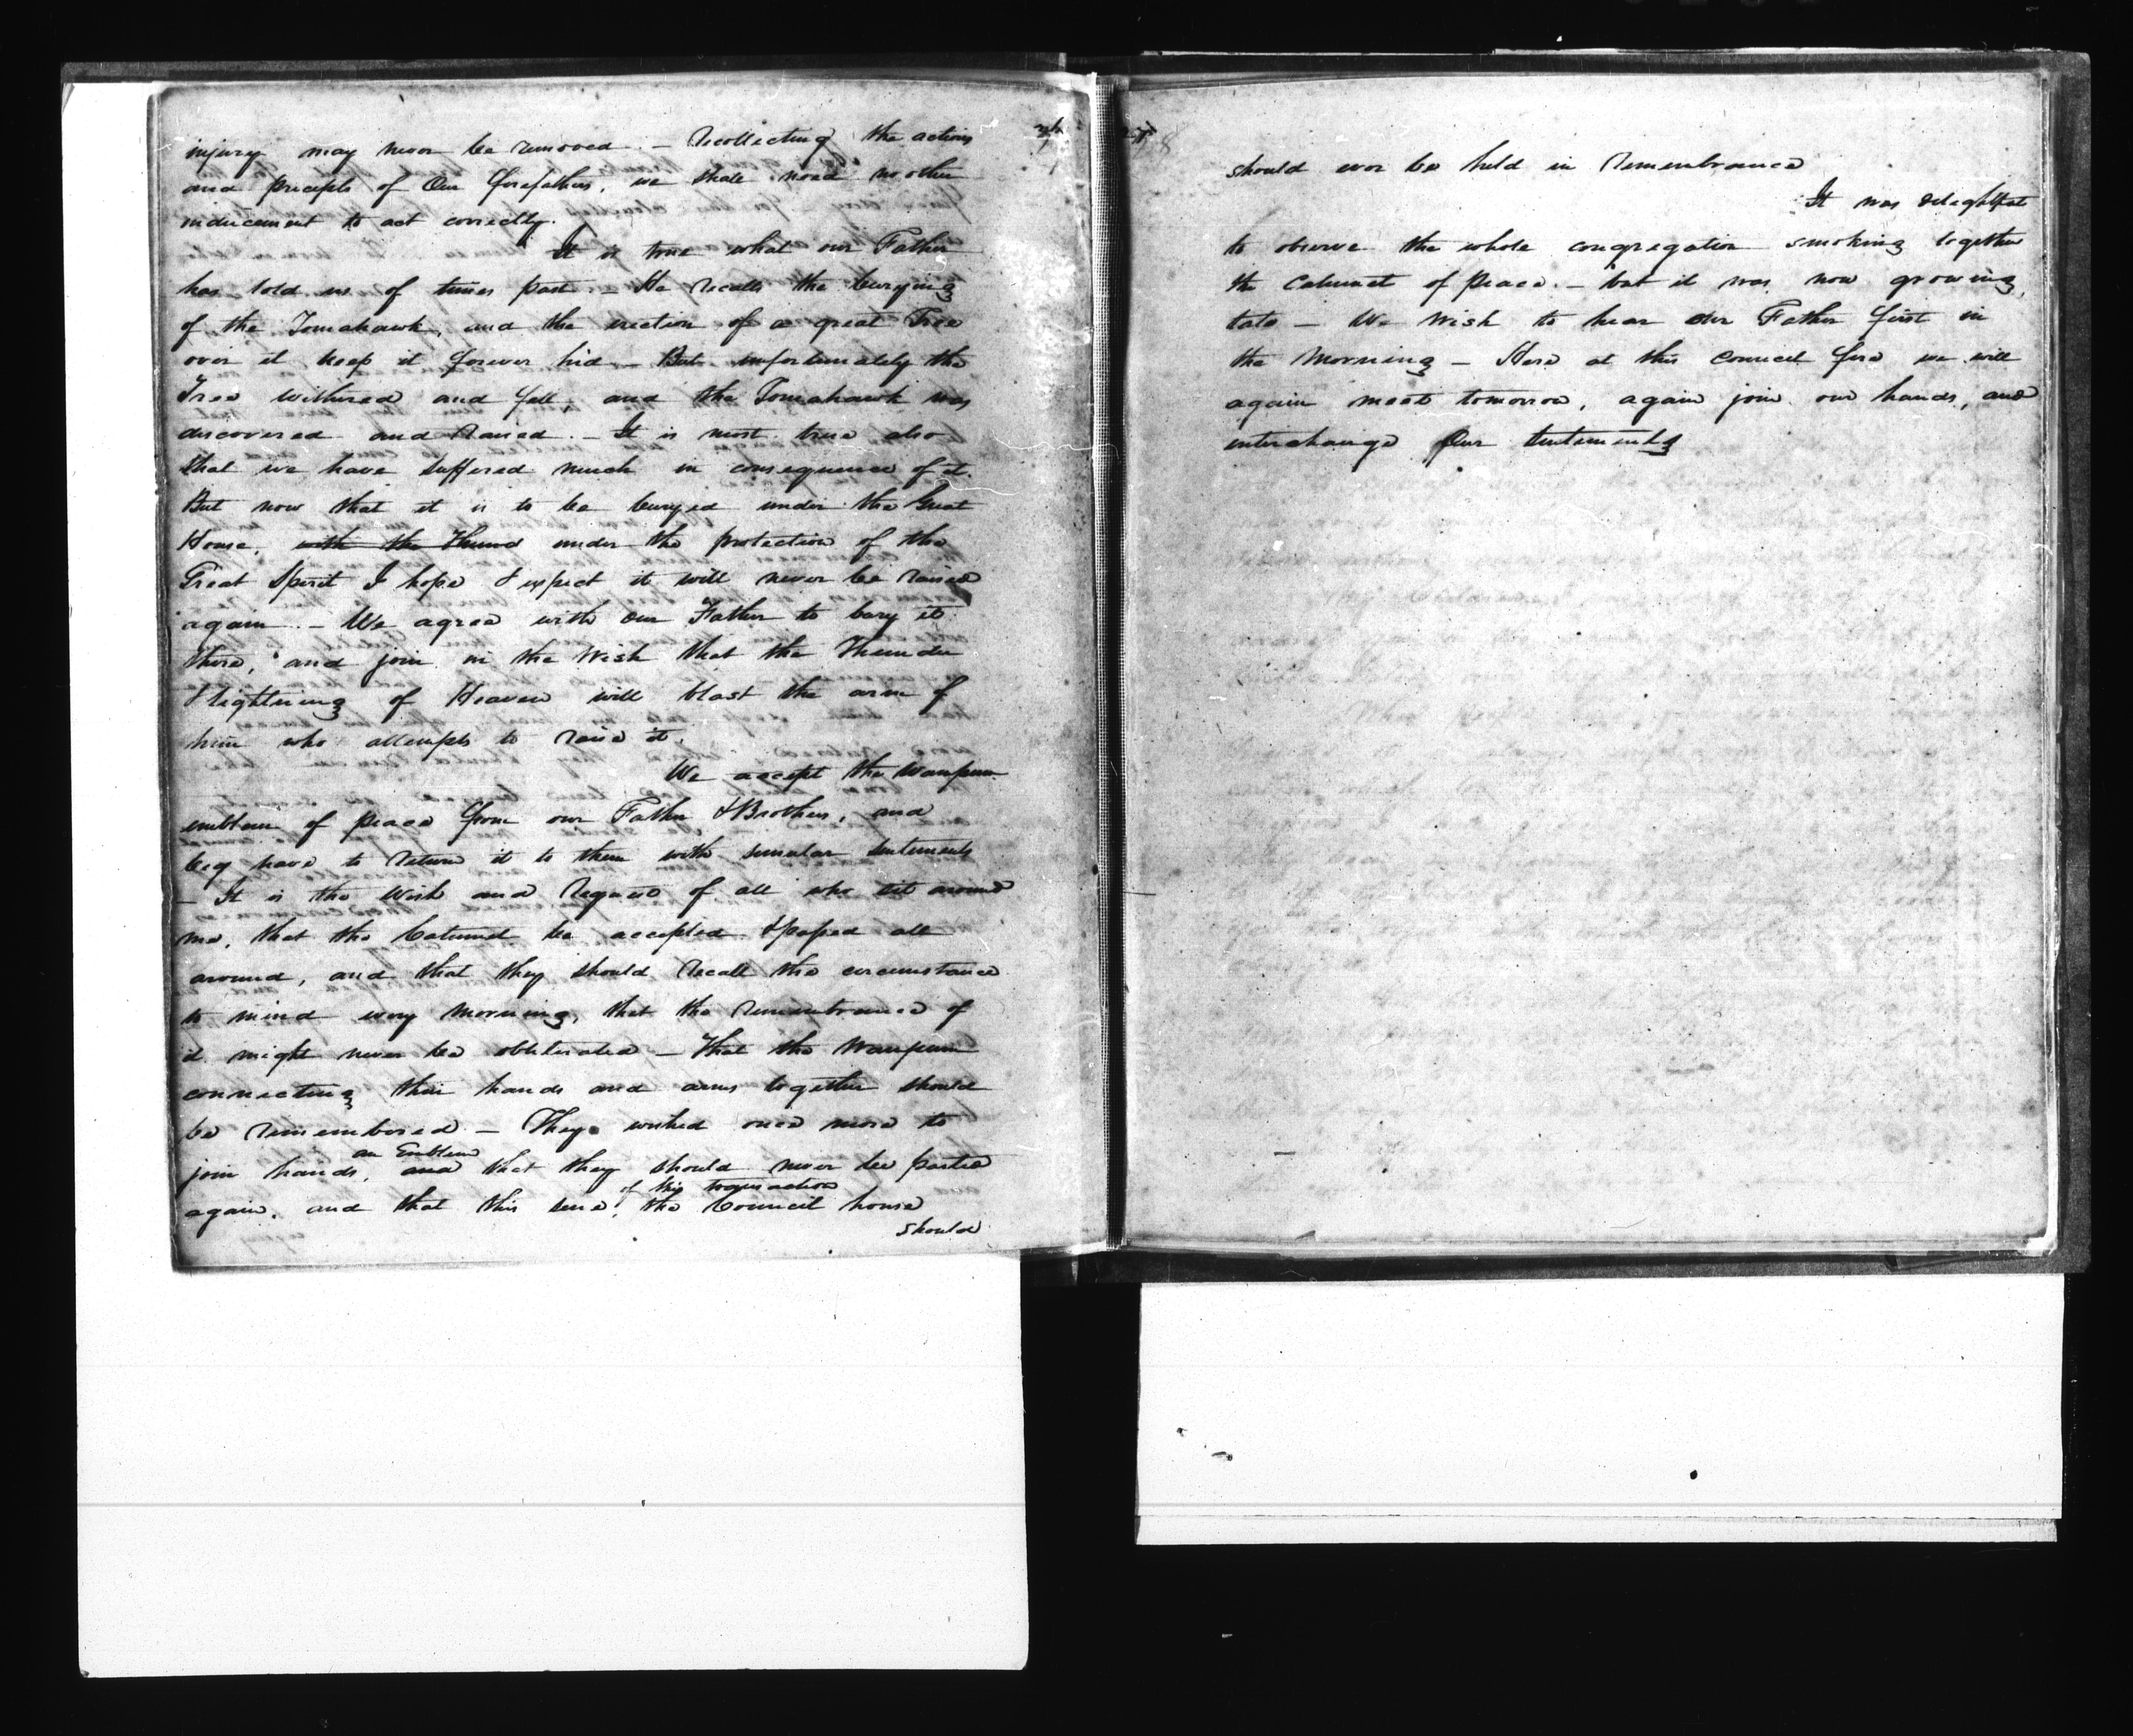 injury may never be removed. — Recollecting the actions
and precepts of Our forefathers, we shall need no other
inducement to act correctly.
It is true what our Father
has told us of times past. — He recalls the burying
of the Tomahawk, and the erection of a great Tree
over it keep it forever hid — But unfortunately the
Tree withered and fell, and the Tomahawk was
discovered and Raised. — It is most true also
that we have suffered much in consequence of it.
But now that it is to be buryed under the Great
House, with the Thund under the protection of the
Great Spirit I hope & expect it will never be raised
again. — We agree with our Father to bury it
there, and join in the Wish that the Thunder
& lightning of Heaven will blast the arm of
him who attempts to raise it.
We accept the Wampum
emblem of peace from our Father & Brothers, and
beg have to return it to them with similar sentiments
— It is the Wish and Request of all who sit around
me, that the Calumet be accepted & passed all
around, and that they should recall the circumstance
to mind every morning, that the remembrance of
it might never be obliterated — That the Wampum
connecting their hands and arms together should
be remembered — They wished once more to
join hands, and an Emblem that they should never be parted
again, and that this scene of this transaction the Council house
should
28
should ever be held in remembrance
It was delightful
to observe the whole congregation smoking together
the Calumet of peace. — but it was now growing
late — We Wish to hear our Father first in
the Morning — Here at this Council fire we will
again meet tomorrow, again join our hands, and
interchange Our Sentiments